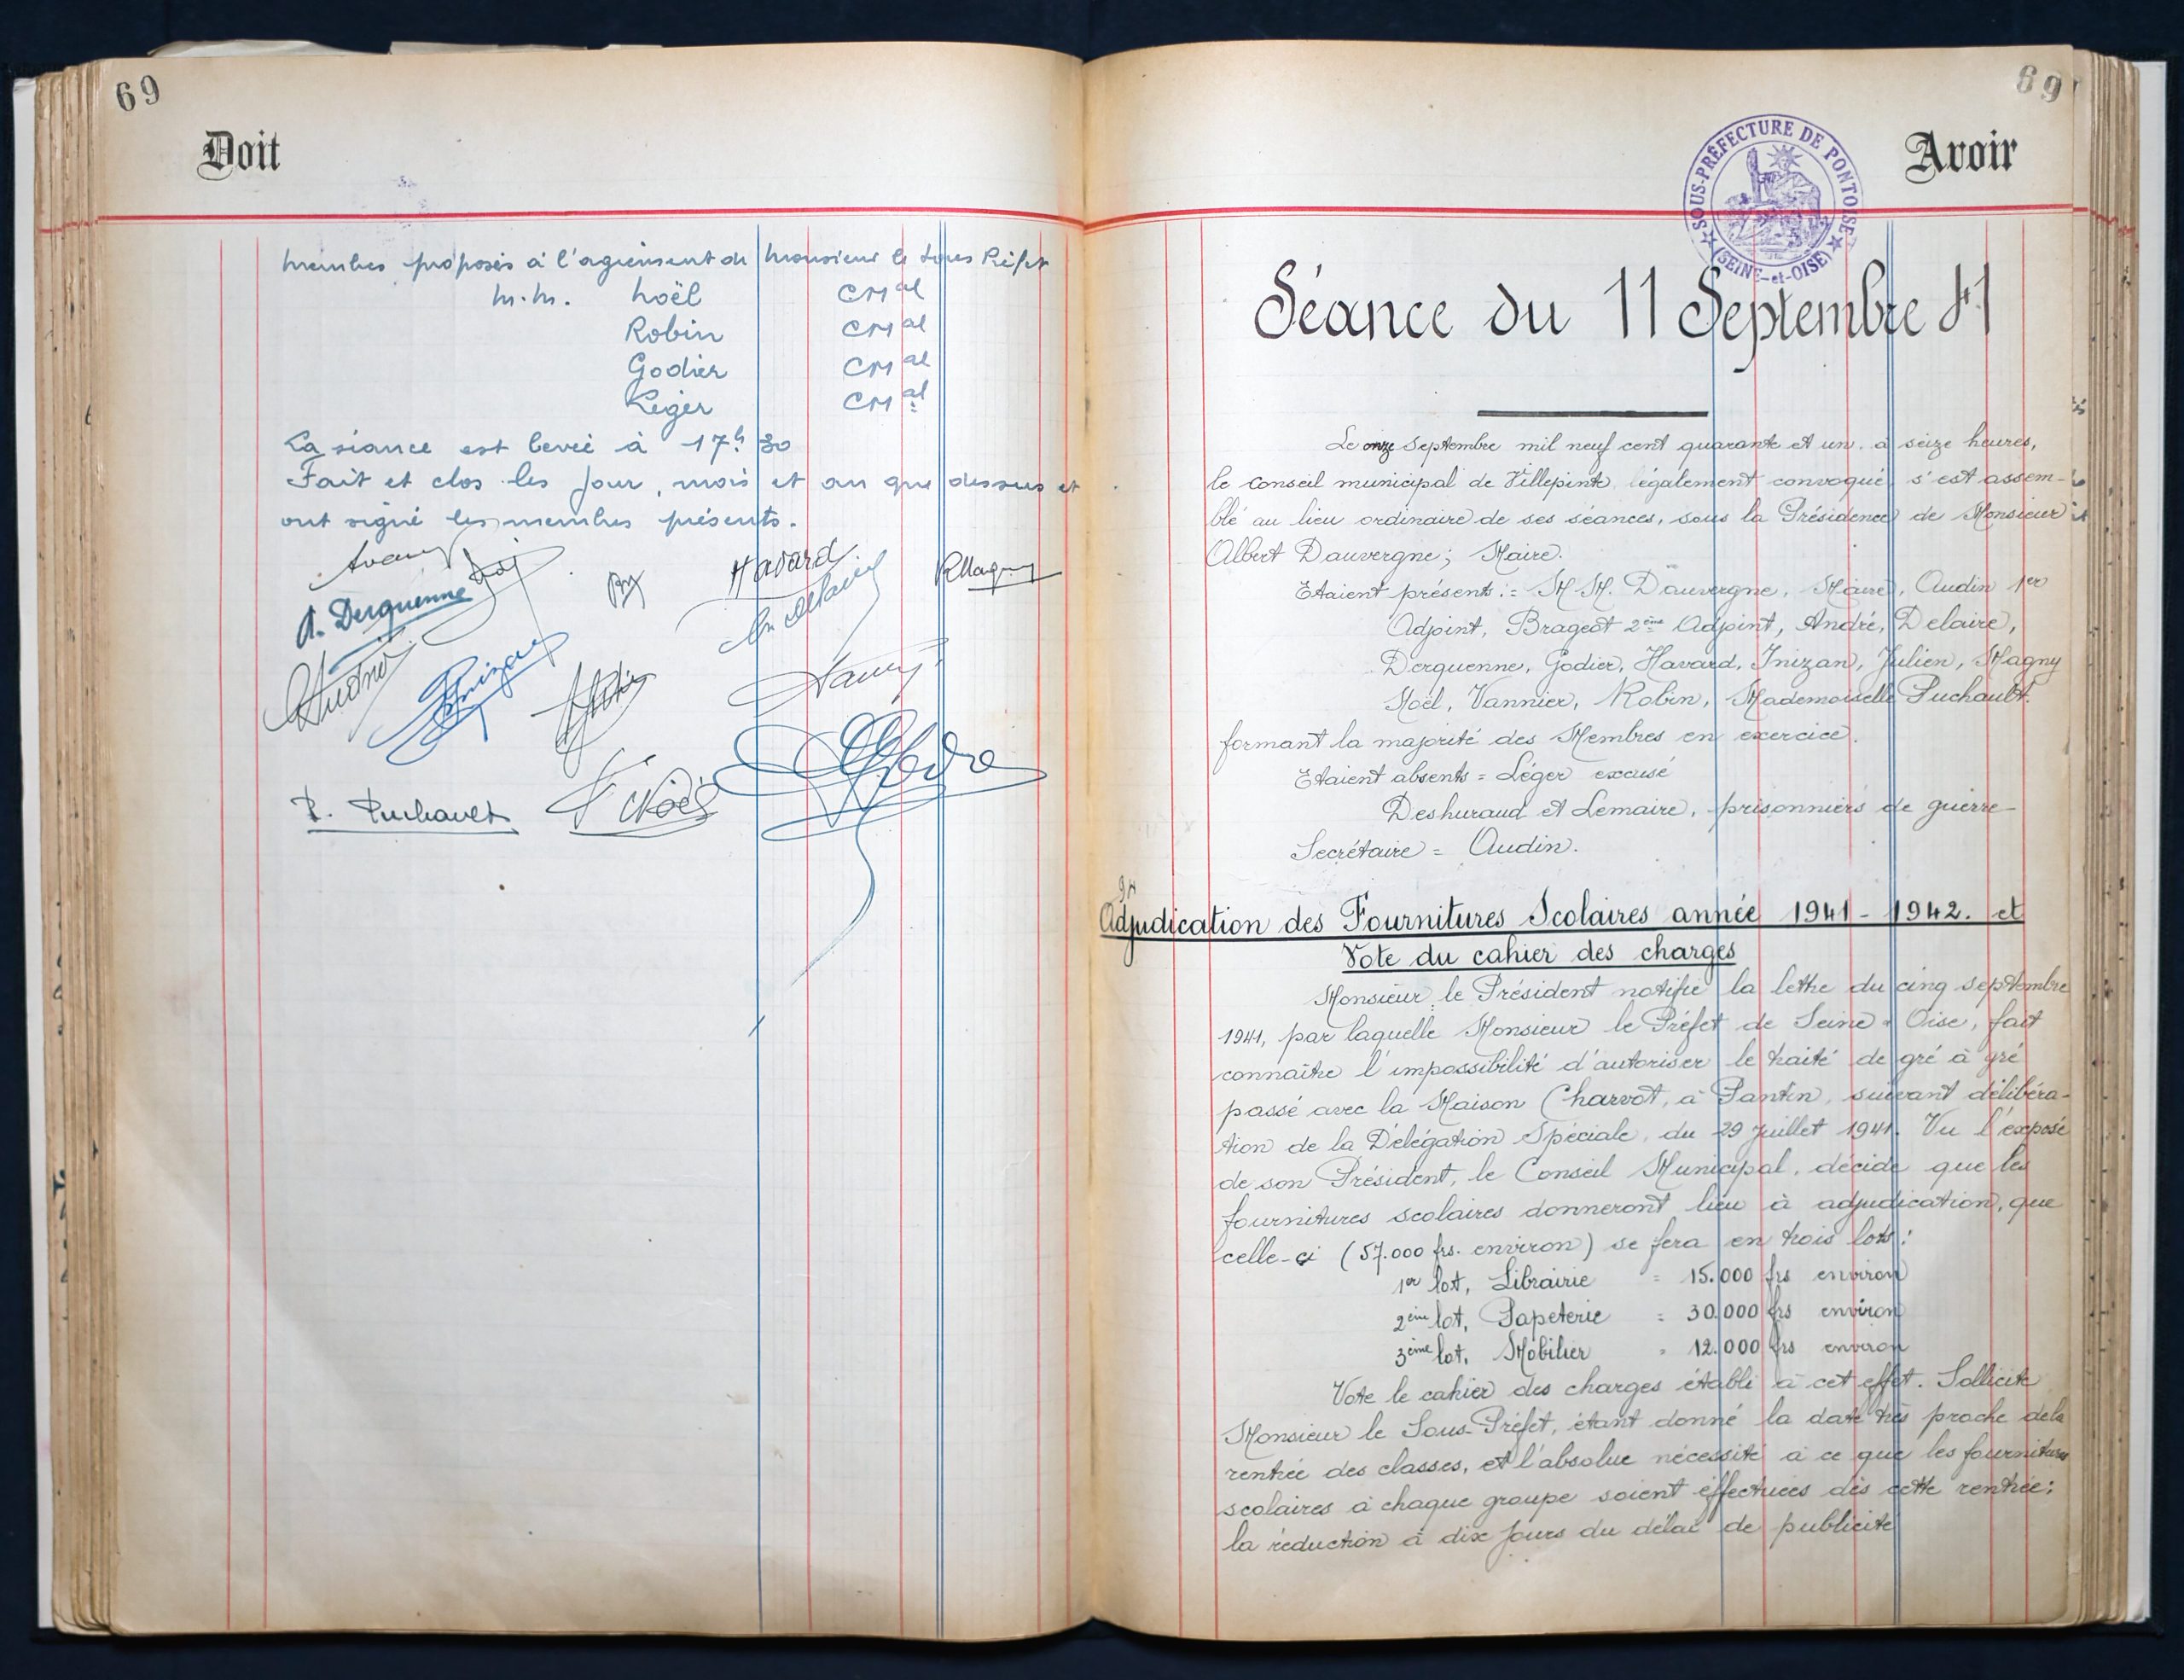 69
Doit
Membres proposés à l'agrément de Monsieur le Sous Préfet
M.M. Noël CMal
Robin CMal
Godier CMal
Léger CMal
La séance est levée à 17h 30
Fait et clos les jour, mois et an que dessus et
ont signé les membres présents.
Havard
A. Derquenne
RMagny
Inizan
P. Puchault
Noël
69
Avoir
SOUS-PRÉFECTURE DE PONTOISE
(SEINE-et-OISE)
Séance du 11 Septembre 41
Le onze Septembre mil neuf cent quarante et un. à seize heures,
le conseil municipal de Villepinte, légalement convoqué, s'est assem-
blé au lieu ordinaire de ses séances, sous la Présidence de Monsieur
Albert Dauvergne; Maire.
Etaient présents := M M. Dauvergne, Maire, Audin 1er
Adjoint, Brageot 2ème Adjoint, André, Delaire,
Derquenne, Godier, Havard, Inizan, Julien, Magny
Noël, Vannier, Robin, Mademoiselle Puchault.
formant la majorité des Membres en exercice.
Etaient absents = Léger excusé
Deshuraud et Lemaire, prisonniers de guerre
Secrétaire = Audin.
Adjudication des Fournitures Scolaires année 1941 - 1942. et
Vote du cahier des charges
Monsieur le Président notifie la lettre du cinq septembre
1941, par laquelle Monsieur le Préfet de Seine & Oise, fait
connaître l'impossibilité d'autoriser le traité de gré à gré
passé avec la Maison Charvot, à Pantin, suivant délibéra-
tion de la Délégation Spéciale, du 29 Juillet 1941. Vu l'exposé
de son Président, le Conseil Municipal, décide que les
fournitures scolaires donneront lieu à adjudication, que
celle-ci (57.000 frs. environ) se fera en trois lots :
1er lot, Librairie = 15.000 frs environ
2ème lot, Papeterie = 30.000 frs environ
3ème lot, Mobilier = 12.000 frs environ
Vote le cahier des charges établi à cet effet. Sollicite
Monsieur le Sous-Préfet, étant donné la date très proche de la
rentrée des classes, et l'absolue nécessité à ce que les fournitures
scolaires à chaque groupe soient effectuées dès cette rentrée;
la réduction à dix jours du délai de publicité